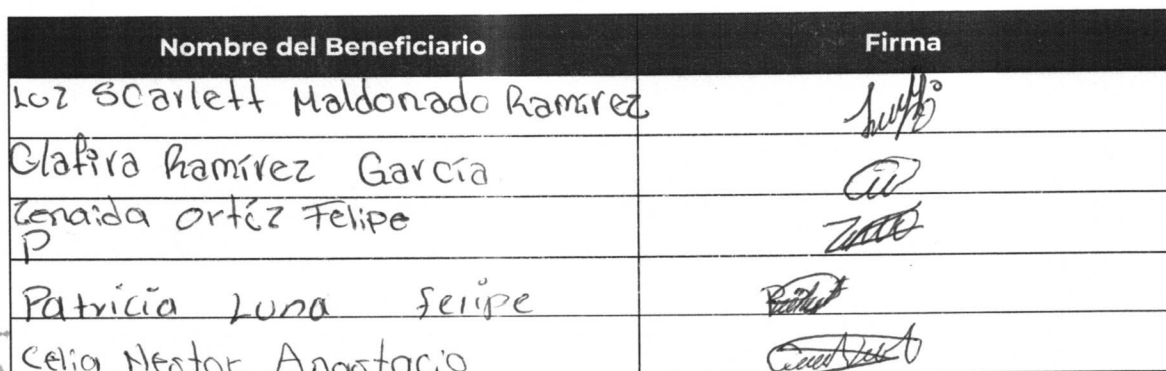 Nombre del Beneficiario Firma
Luz Scarlett Maldonado Ramírez
Glafira Ramírez García
Zenaida Ortíz Felipe
P
Patricia Luna Felipe
Celia Nestor Anastacio